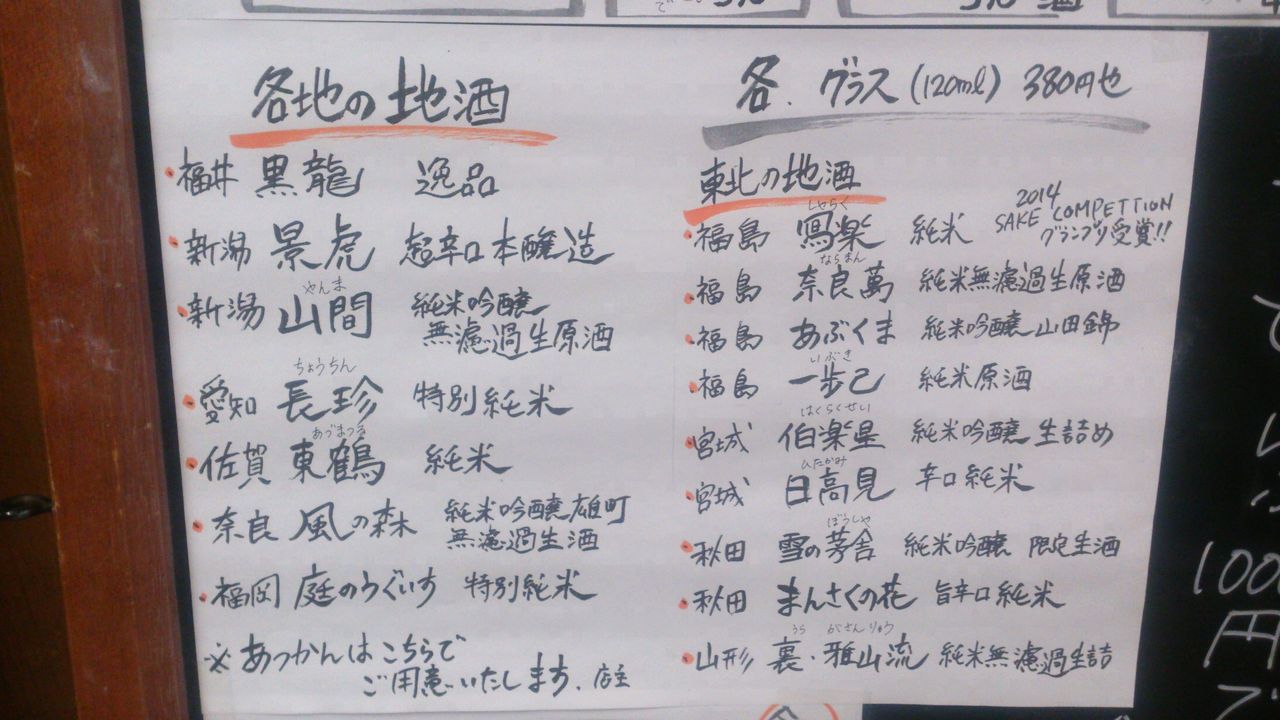 各地の地酒
・福井 黒龍 逸品
・新潟 景虎 超辛口本醸造
やんま
・新潟 山間 純米吟醸
無濾過生原酒
ちょうちん
・愛知 長珍 特別純米
あづまつる
・佐賀 東鶴 純米
・奈良 風の森 純米吟醸雄町
無濾過生酒
・福岡 庭のうぐいす 特別純米
※あつかんはこちらで
ご用意いたします。店主
各.グラス(120ml) 380円也
東北の地酒
しゃらく
・福島 寫楽 純米
2014
SAKE COMPETTION
グランプリ受賞!!
ならまん
・福島 奈良萬 純米無濾過生原酒
・福島 あぶくま 純米吟醸 山田錦
いぶき
・福島 一歩己 純米原酒
はくらくせい
・宮城 伯楽星 純米吟醸 生詰め
ひたかみ
・宮城 日高見 辛口純米
ぼうしゃ
・秋田 雪の茅舎 純米吟醸 限定生酒
・秋田 まんさくの花 旨辛口純米
うら がさんりゅう
・山形 裏・雅山流 純米無濾過生詰
100
円